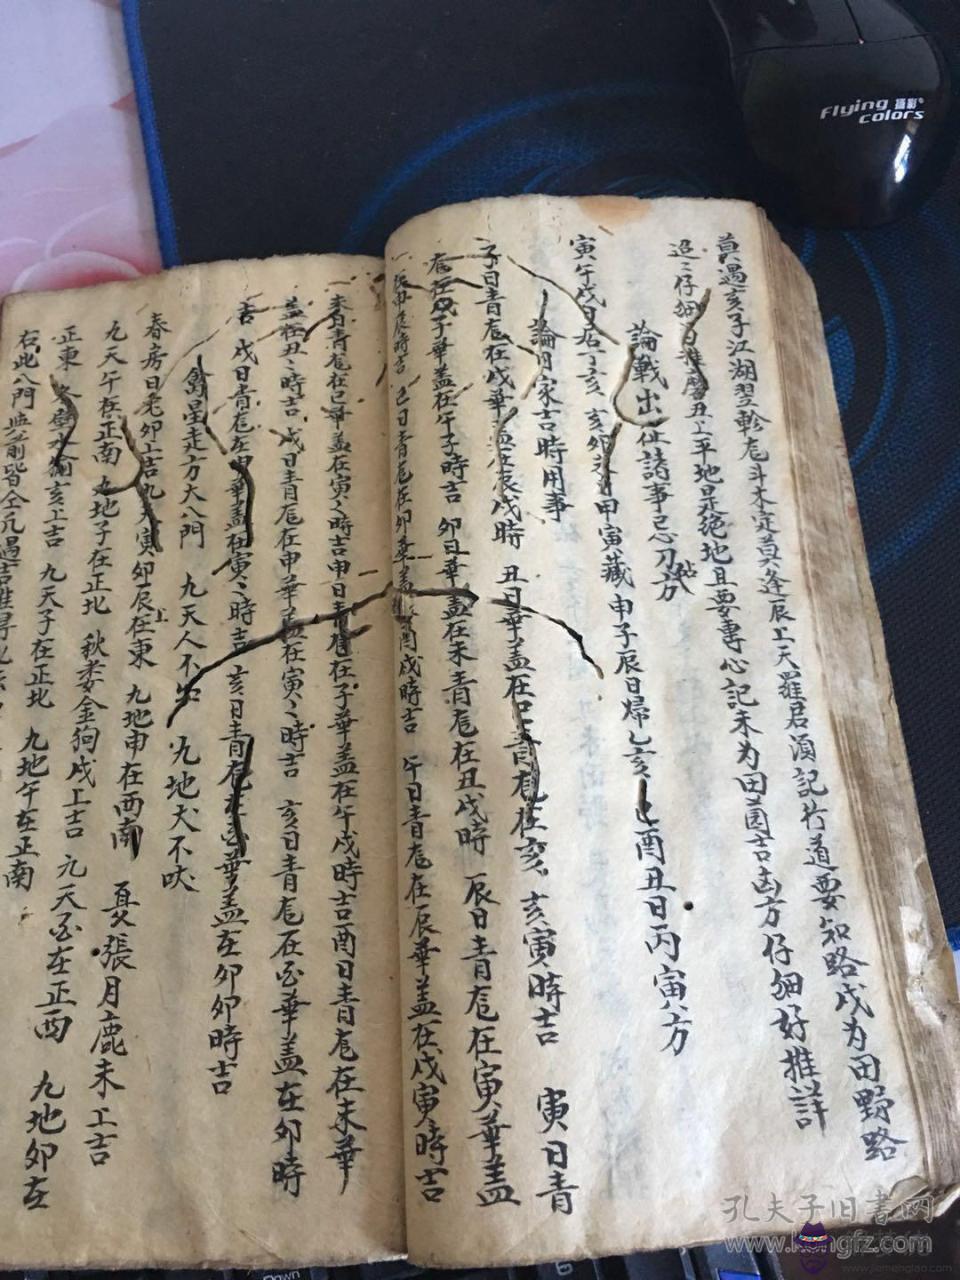 莫遇亥子江湖翌軫危斗木定莫逢辰上天羅君須記行道要知路戌为田野路
迢〻仔細日推磨丑上平地是绝地且要專心記未为田園吉凶方仔細好推詳
論戰出征詩事忌刀方
寅午戌日居丁亥 亥卯未 甲寅藏 申子辰日歸乙亥 巳酉丑日丙寅方
論月家吉時用事
子日青危在戌華盖在辰戌時 丑日華盖在巳青危在亥亥寅時吉 寅日青
危在子華盖在午子時吉 卯日華盖在未青危在丑戌時 辰日青危在寅華盖
在申辰時吉 巳日青危在卯華盖 酉戌時吉 午日青危在辰華盖在戌寅時吉
未日青危在巳華盖在寅〻時吉申日青危在子華盖在午戌時吉酉日青危在未華
盖在丑〻時吉 戌日青危在申華盖在寅〻時吉 亥日青危在酉華盖在卯時
吉 戌日青危在申華盖在寅〻時吉 亥日青危在酉華盖在卯卯時吉
禽星走方大八門 九天人不知 九地犬不吠
春房日兎卯上吉九天寅卯辰在東 九地申在西南 夏張月鹿未上吉
九天午在正南 九地子在正北 秋娄金狗戌上吉 九天酉在正西 九地卯在
正東 冬 水 亥上吉 九天子在正北 九地午在正南
右此八門与前皆全凡遇吉
Flying 攝影
colors
孔夫子旧書网
www.kongfz.com
Down
www.jiemengtao.com